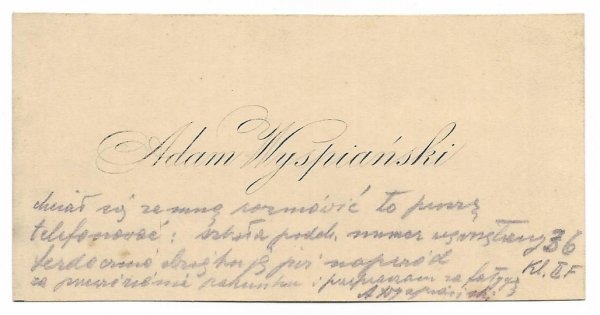 Adam Wyspiański
chciał się ze mną rozmówić to proszę
telefonować: szkoła podch. numer wewnętrzny 36
Serdecznie dziękuję już naprzód Kl. II F
za rachunku i przepraszam za fatygę
A Wyspiański